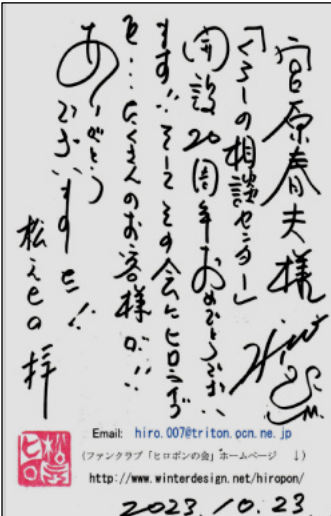 宮原春夫様
「くらしの相談センター」
開設20周年おめでとうござい
ます!! そしてその会にヒロシが
を…たくさんのお客様が!!
ありがとう
ございます!!
松
拝
Email: hiro.007@triton.ocn.ne.jp
(ファンクラブ「ヒロポンの会」ホームページ ↓)
http://www.winterdesign.net/hiropon/
2023.10.23